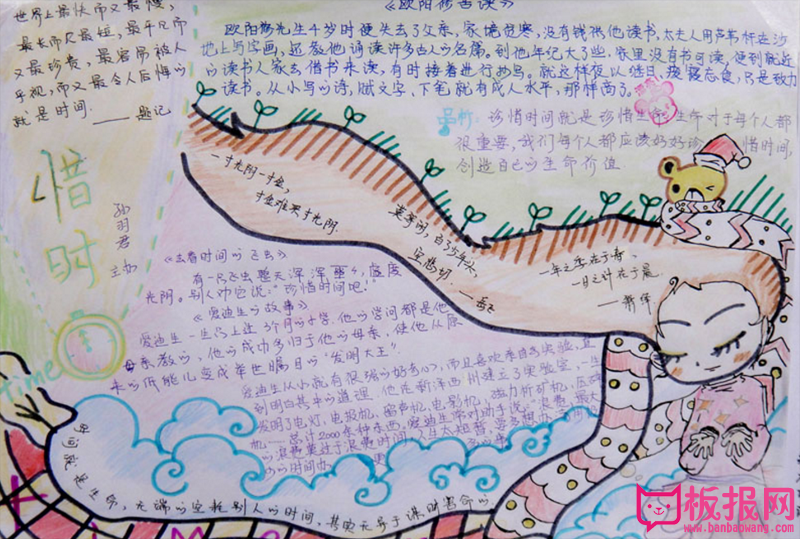 世界上最快而又最慢，
最长而又最短，最平凡而
又最珍贵，最容易被人
忽视，而又最令人后悔的
就是时间.
——题记
《欧阳修苦读》
欧阳修先生4岁时便失去了父亲，家境贫寒，没有钱供他读书，太夫人用芦苇杆在沙
地上写字画，还教他诵读许多古人的名篇。到他年纪大了些，家里没有书可读，便到就近
的读书人家去借书来读，有时接着进行抄写。就这样夜以继日，废寝忘食，只是致力
读书。从小写的诗，赋文字，下笔就有成人水平，那样高了。
珍惜时间就是珍惜生命，生命对于每个人都
很重要，我们每个人都应该好好珍惜时间，
创造自己的生命价值
惜
时
主办
一寸光阴一寸金，
寸金难买寸光阴.
莫等闲，白了少年头，
空悲切.
一年之季在于春，
一日之计在于晨.
《去看时间的飞去》
光阴。别人劝它说："珍惜时间吧！"
《爱迪生的故事》
爱迪生一生只上过3个月的小学，他的学问都是他
母亲教的，他的成功多归于他的母亲，使他从原
来的低能儿变成举世瞩目的"发明大王"
爱迪生从小就有很强的好奇心，而且喜欢亲自去实验，直
到明白其中的道理
发明了电灯，电报机，留声机，电影机，磁力析矿机，压碎
机……总计2000余种东西，爱迪生常对助手说，浪费，最大
的浪费莫过于浪费时间
time
时间就是生命，无端的空耗别人的时间，其实无异于谋财害命的.
板报网
www.banbaowang.com